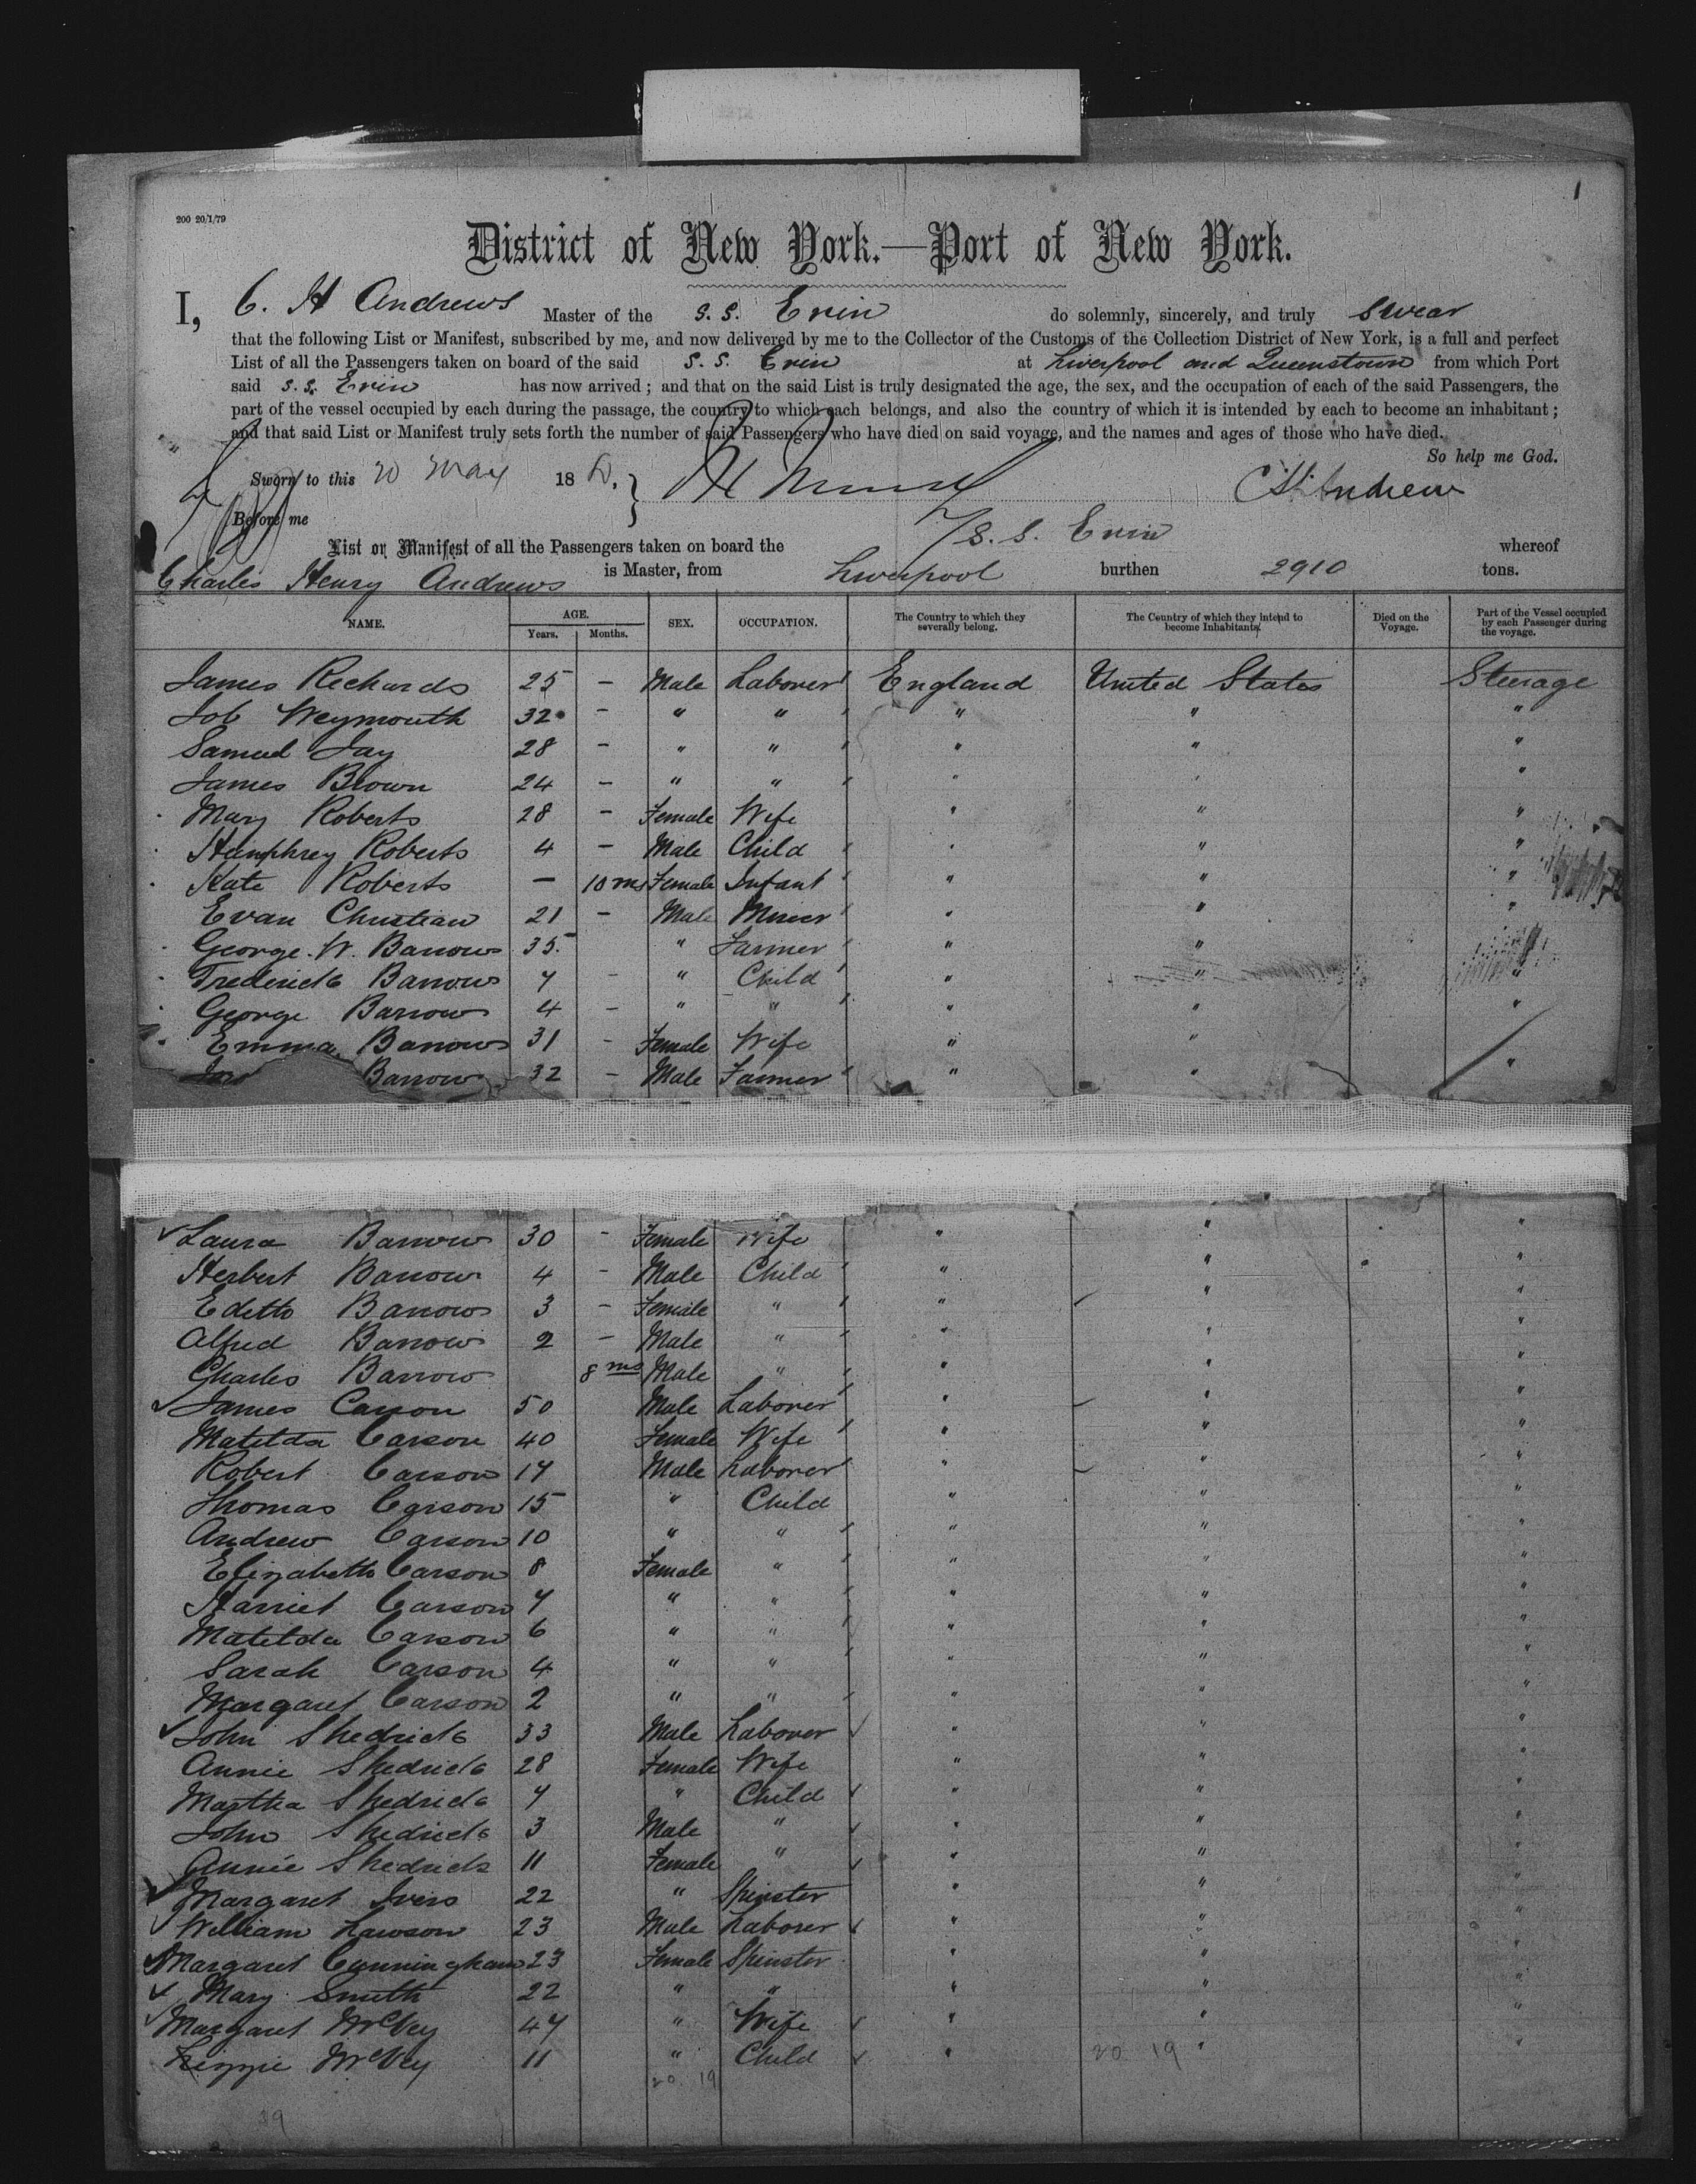 1
200 20/1/79
District of New York.—Port of New York.
I, C. H Andrews Master of the S.S. Erin do solemnly, sincerely, and truly swear
that the following List or Manifest, subscribed by me, and now delivered by me to the Collector of the Customs of the Collection District of New York, is a full and perfect
List of all the Passengers taken on board of the said S.S. Erin at Liverpool and Queenstown from which Port
said S.S. Erin has now arrived; and that on the said List is truly designated the age, the sex, and the occupation of each of the said Passengers, the
part of the vessel occupied by each during the passage, the country to which each belongs, and also the country of which it is intended by each to become an inhabitant;
and that said List or Manifest truly sets forth the number of said Passengers who have died on said voyage, and the names and ages of those who have died.
So help me God.
Sworn to this 20 May 188 } CH Andrews
Before me
List or Manifest of all the Passengers taken on board the S.S. Erin whereof
Charles Henry Andrews is Master, from Liverpool burthen 2910 tons.
NAME. AGE. Years. Months. SEX. OCCUPATION. The Country to which they severally belong. The Country of which they intend to become Inhabitants. Died on the Voyage. Part of the Vessel occupied by each Passenger during the voyage.
James Richards 25 – Male Laborer England United States Steerage
Job Weymouth 32 – " " " " "
Samuel Jay 28 – " " " " "
James Brown 24 – " " " " "
Mary Roberts 28 – Female Wife " " "
Humphrey Roberts 4 – Male Child " " "
Kate Roberts – 10 ms Female Infant " " "
Evan Christian 21 – Male Miner " " "
George W. Barrow 35 " Farmer " " "
Frederick Barrow 7 – " Child " " "
George Barrow 4 – " " " " "
Emma Barrow 31 – Female Wife " "
Barrow 32 – Male Farmer " " "
Laura Barrow 30 – Female Wife " " "
Herbert Barrow 4 – Male Child " " "
Edith Barrow 3 – Female " " " "
Alfred Barrow 2 – Male " " " "
Charles Barrow 8 ms Male " " " "
James Carson 50 Male Laborer " " "
Matilda Carson 40 Female Wife " " "
Robert Carson 17 Male Laborer " " "
Thomas Carson 15 " Child " " "
Andrew Carson 10 " " " " "
Elizabeth Carson 8 Female " " " "
Harriet Carson 7 " " " " "
Matilda Carson 6 " " " " "
Sarah Carson 4 " " " " "
Margaret Carson 2 " " " " "
John Shedrick 33 Male Laborer " " "
Annie Shedrick 28 Female Wife " " "
Martha Shedrick 7 " Child " " "
John Shedrick 3 Male " " " "
Annie Shedrick 11 Female " " " "
Margaret Ivers 22 " Spinster " " "
William Lawson 23 Male Laborer " " "
Margaret Cunningham 23 Female Spinster " " "
Mary Smith 22 " " " " "
Margaret McVey 47 " Wife " " "
Lizzie McVey 11 " Child " " "
20 19
20 19
39